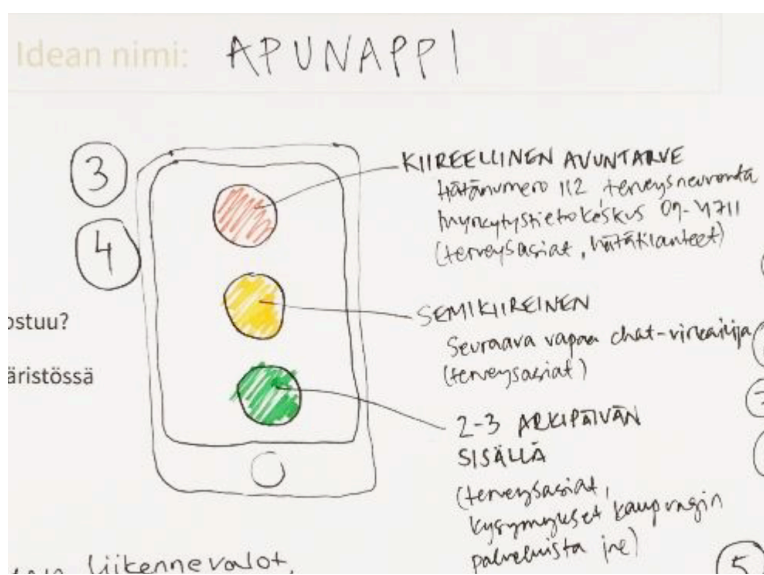 Idean nimi: APUNAPPI
3
4
KIIREELLINEN AVUNTARVE
Hätänumero 112 terveysneuvonta
Myrkytystietokeskus 09-4711
(terveysasiat, hätätilanteet)
SEMIKIIREINEN
Seuraava vapaa chat-virkailija
(terveysasiat)
ostuu?
äristössä
2-3 ARKIPÄIVÄN
SISÄLLÄ
(terveysasiat,
kysymykset kaupungin
palveluista jne)
liikennevalot,
5